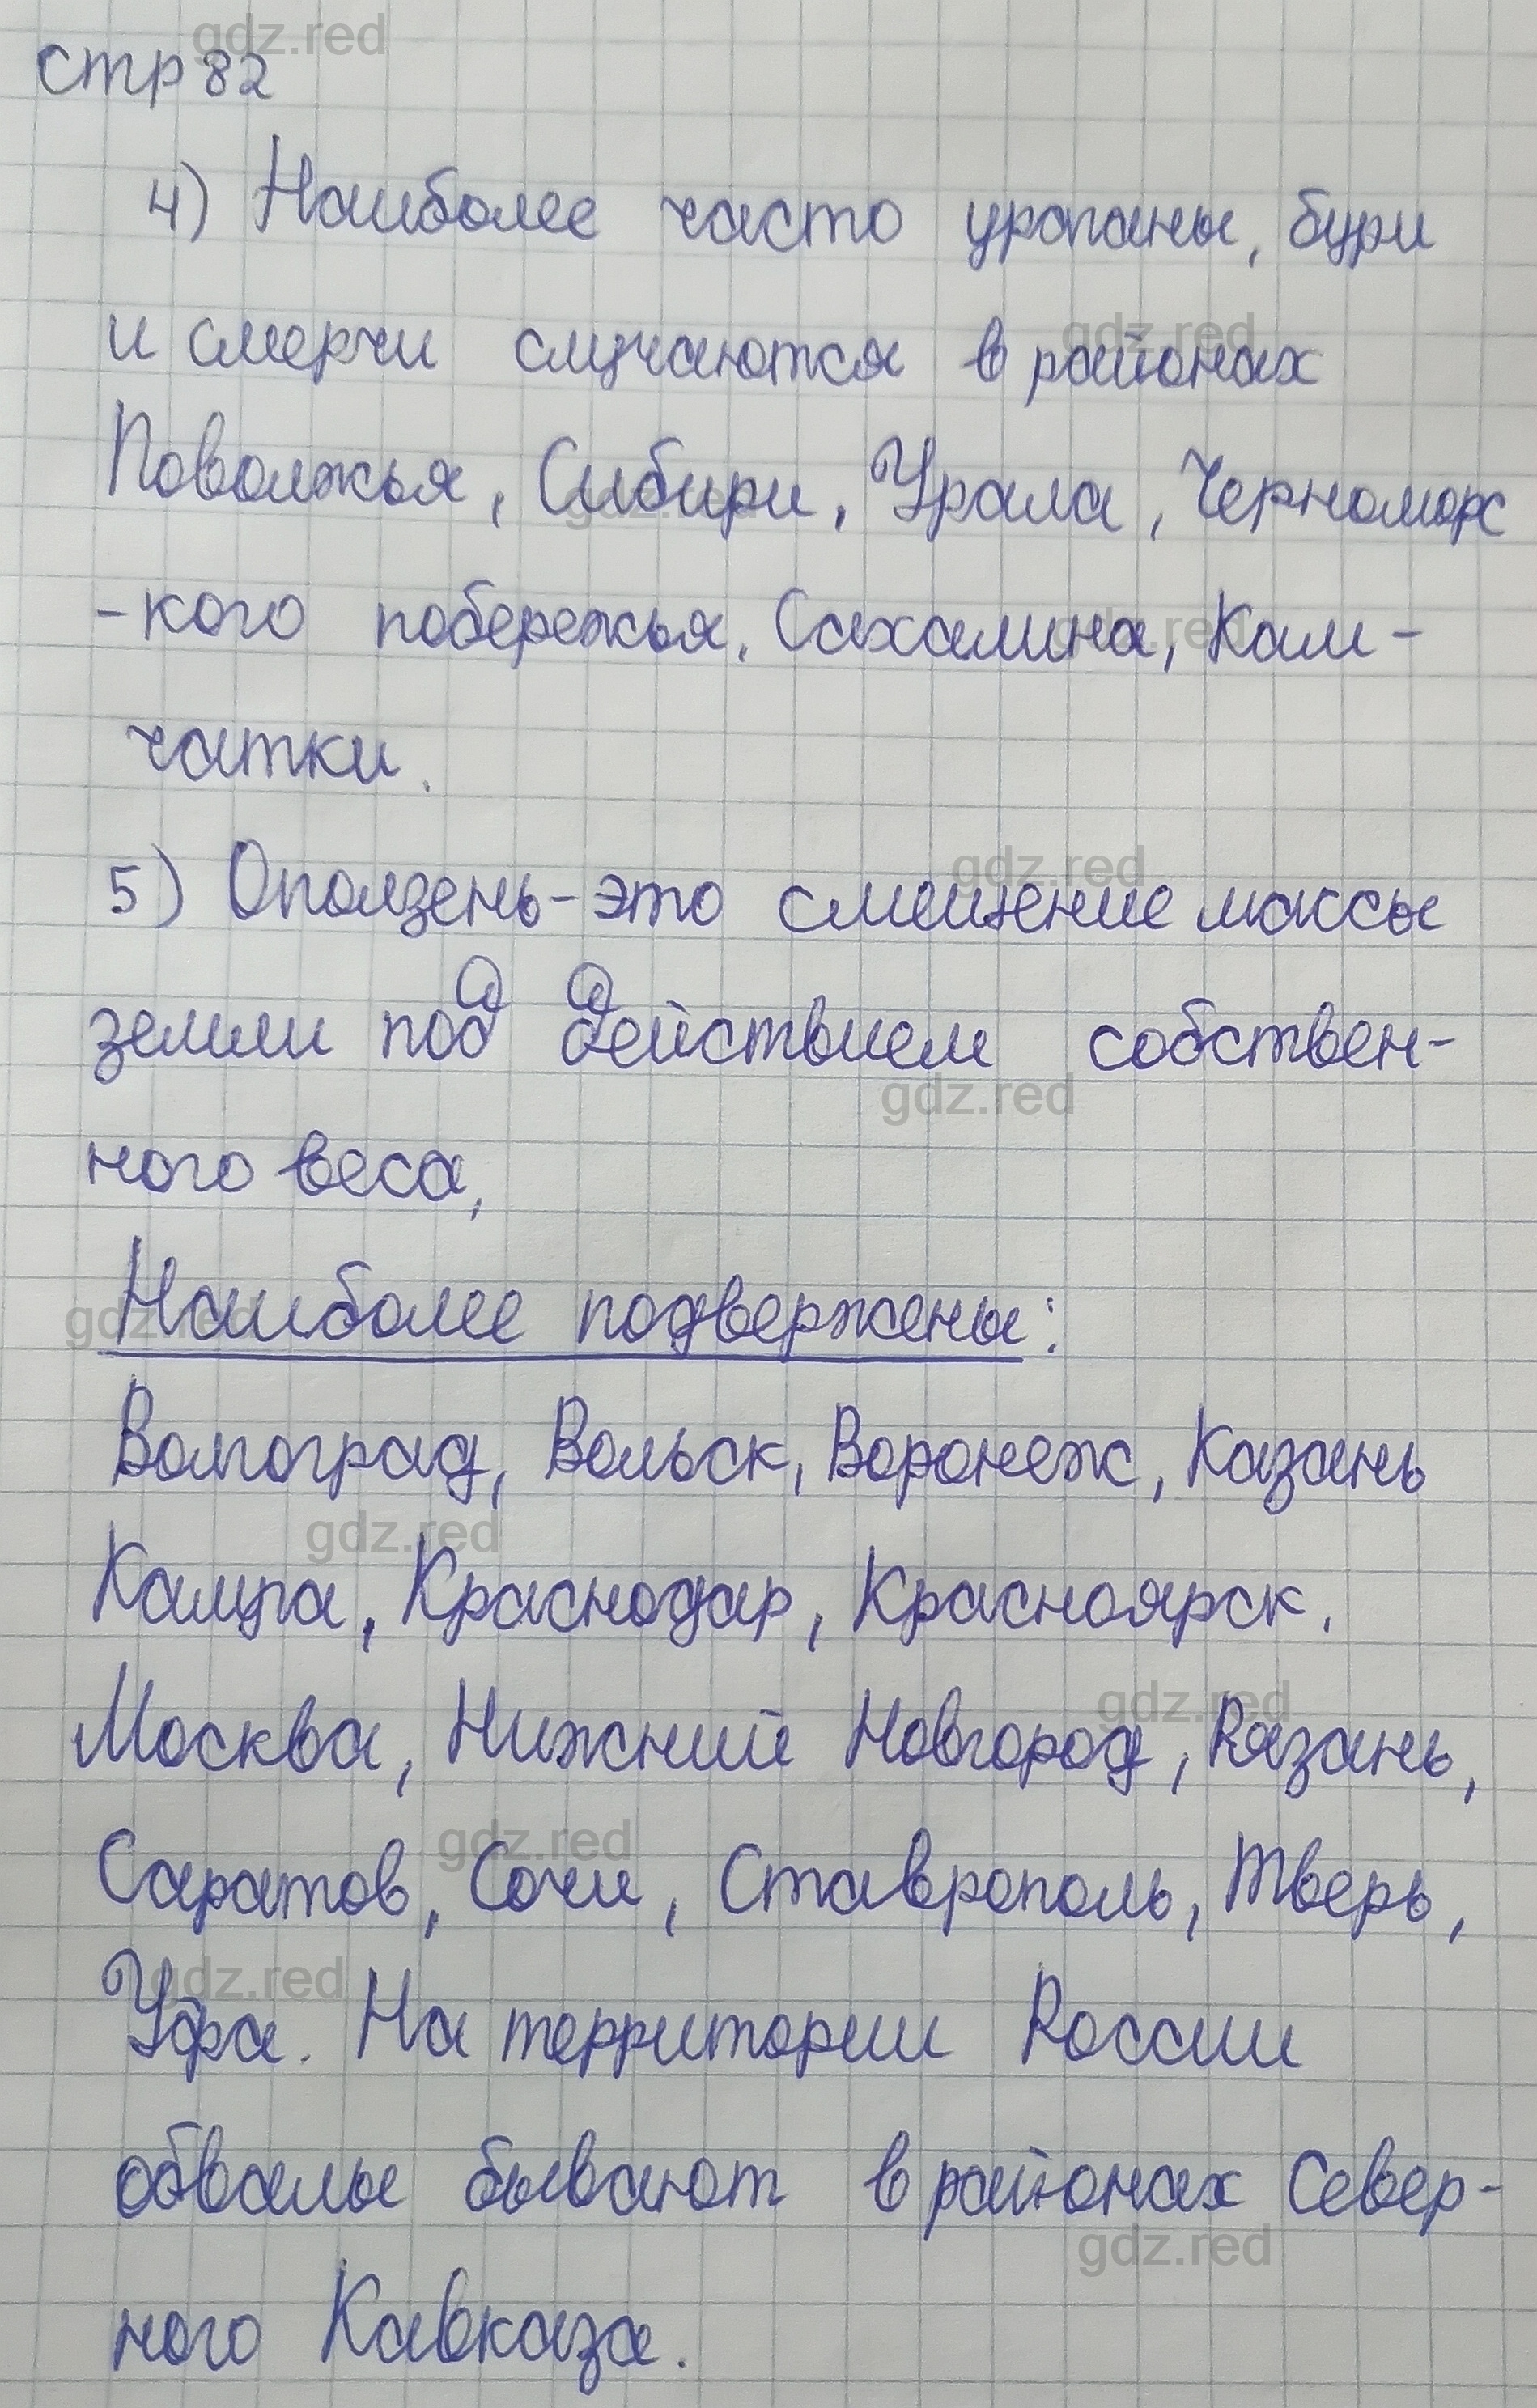 стр 82
4) Наиболее часто ураганы, бури
и смерчи случаются в районах
Поволжья, Сибири, Урала, Черноморс
-кого побережья, Сахалина, Кам-
чатки.
5) Оползень - это смещение массы
земли под действием собствен-
ного веса,
Наиболее подвержены:
Волгоград, Вольск, Воронеж, Казань
Калуга, Краснодар, Красноярск,
Москва, Нижний Новгород, Рязань,
Саратов, Сочи, Ставрополь, Тверь,
Уфа. На территории России
обвалы бывают в районах Север-
ного Кавказа.
gdz.red
gdz.red
gdz.red
gdz.red
gdz.red
gdz.red
gdz.red
gdz.red
gdz.red
gdz.red
gdz.red
gdz.red